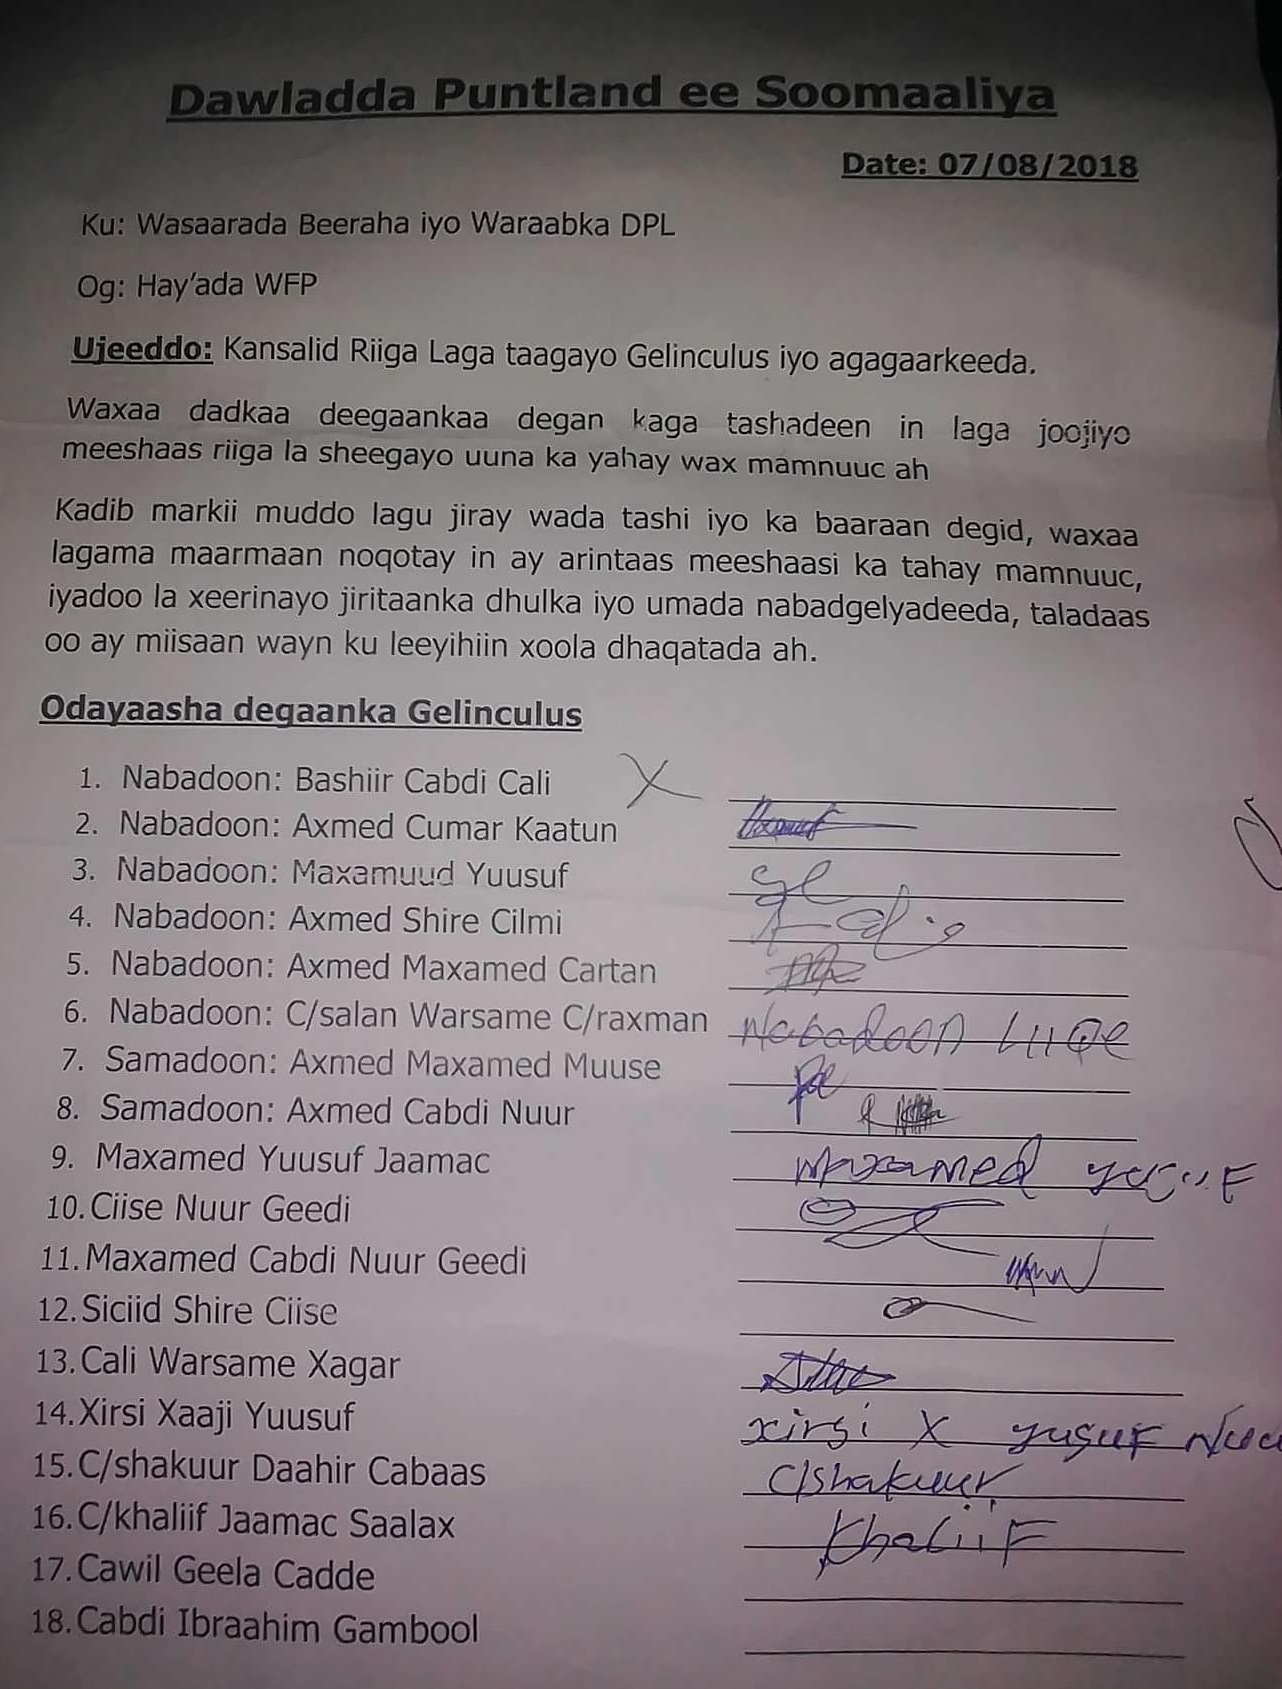 Dawladda Puntland ee Soomaaliya
Date: 07/08/2018
Ku: Wasaarada Beeraha iyo Waraabka DPL
Og: Hay'ada WFP
Ujeeddo: Kansalid Riiga Laga taagayo Gelinculus iyo agagaarkeeda.
Waxaa dadkaa deegaankaa degan kaga tashadeen in laga joojiyo
meeshaas riiga la sheegayo uuna ka yahay wax mamnuuc ah
Kadib markii muddo lagu jiray wada tashi iyo ka baaraan degid, waxaa
lagama maarmaan noqotay in ay arintaas meeshaasi ka tahay mamnuuc,
iyadoo la xeerinayo jiritaanka dhulka iyo umada nabadgelyadeeda, taladaas
oo ay miisaan wayn ku leeyihiin xoola dhaqatada ah.
Odayaasha degaanka Gelinculus
1. Nabadoon: Bashiir Cabdi Cali X
2. Nabadoon: Axmed Cumar Kaatun
3. Nabadoon: Maxamuud Yuusuf
4. Nabadoon: Axmed Shire Cilmi
5. Nabadoon: Axmed Maxamed Cartan
6. Nabadoon: C/salan Warsame C/raxman Nabadoon LiiQe
7. Samadoon: Axmed Maxamed Muuse
8. Samadoon: Axmed Cabdi Nuur
9. Maxamed Yuusuf Jaamac Maxamed
10. Ciise Nuur Geedi
11. Maxamed Cabdi Nuur Geedi
12. Siciid Shire Ciise
13. Cali Warsame Xagar
14. Xirsi Xaaji Yuusuf xirsi X yusuf
15. C/shakuur Daahir Cabaas C/shakuur
16. C/khaliif Jaamac Saalax KhaliiF
17. Cawil Geela Cadde
18. Cabdi Ibraahim Gambool